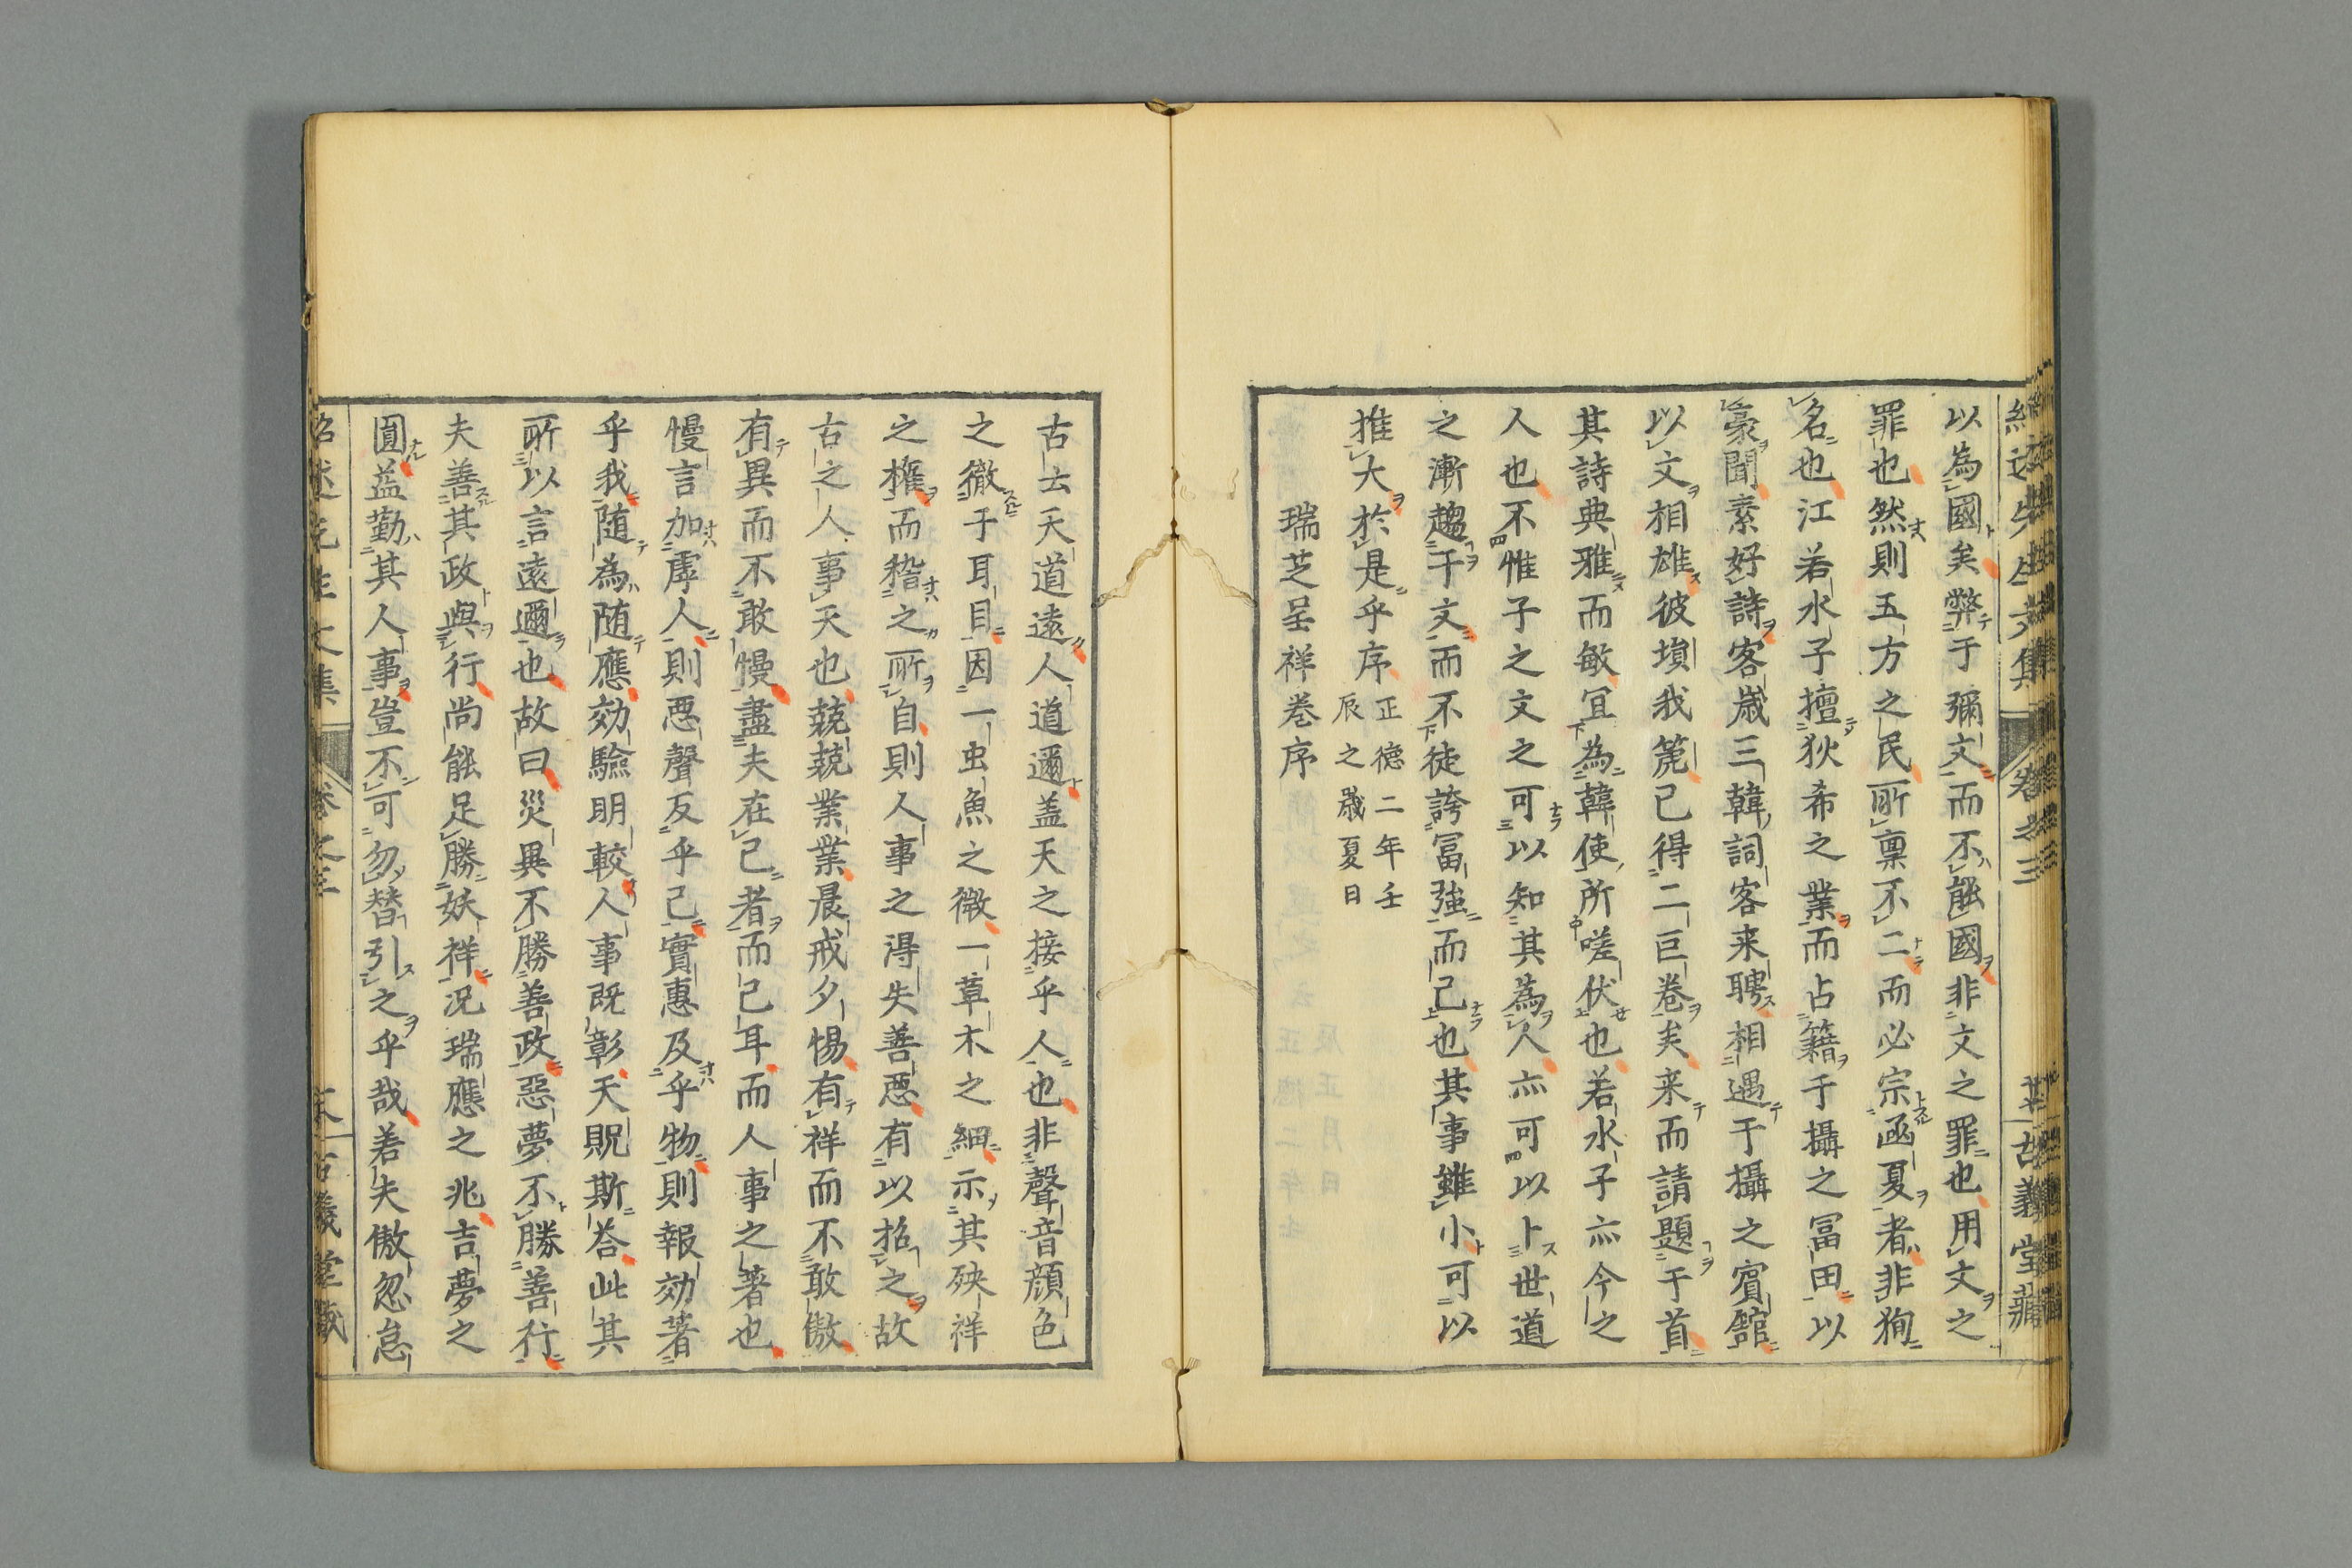 以為國矣弊于彌文而不能國非文之罪也用文之
罪也然則五方之民所稟不二而必宗函夏者非狥
名也江若水子擅狄希之業而占籍于攝之冨田以
豪聞素好詩客歳三韓詞客来聘相遇于攝之賓舘
以文相雄彼塤我箎已得二巨卷矣来而請題于首
其詩典雅而敏冝為韓使所嗟伏也若水子亦今之
人也不惟子之文之可以知其為人亦可以卜世道
之漸趨于文而不徒誇冨強而已也其事雖小可以
推大於是乎序
正德二年壬
辰之歳夏日
瑞芝呈祥巻序
古云天道遠人道邇盖天之接乎人也非聲音顔色
之徹于耳目因一虫魚之微一草木之細示其殃祥
之権而稽之所自則人事之得失善悪有以招之故
古之人事天也兢兢業業晨戒夕惕有祥而不敢傲
有異而不敢慢盡夫在己者而已耳而人事之著也
慢言加虖人則悪聲反乎己實惠及乎物則報効著
乎我随為随應効驗明較人事既彰天貺斯荅此其
所以言遠邇也故曰災異不勝善政惡夢不勝善行
夫善其政與行尚能足勝妖祥况瑞應之兆吉夢之
圓益勤其人事豈不可勿替引之乎哉若夫傲忽怠